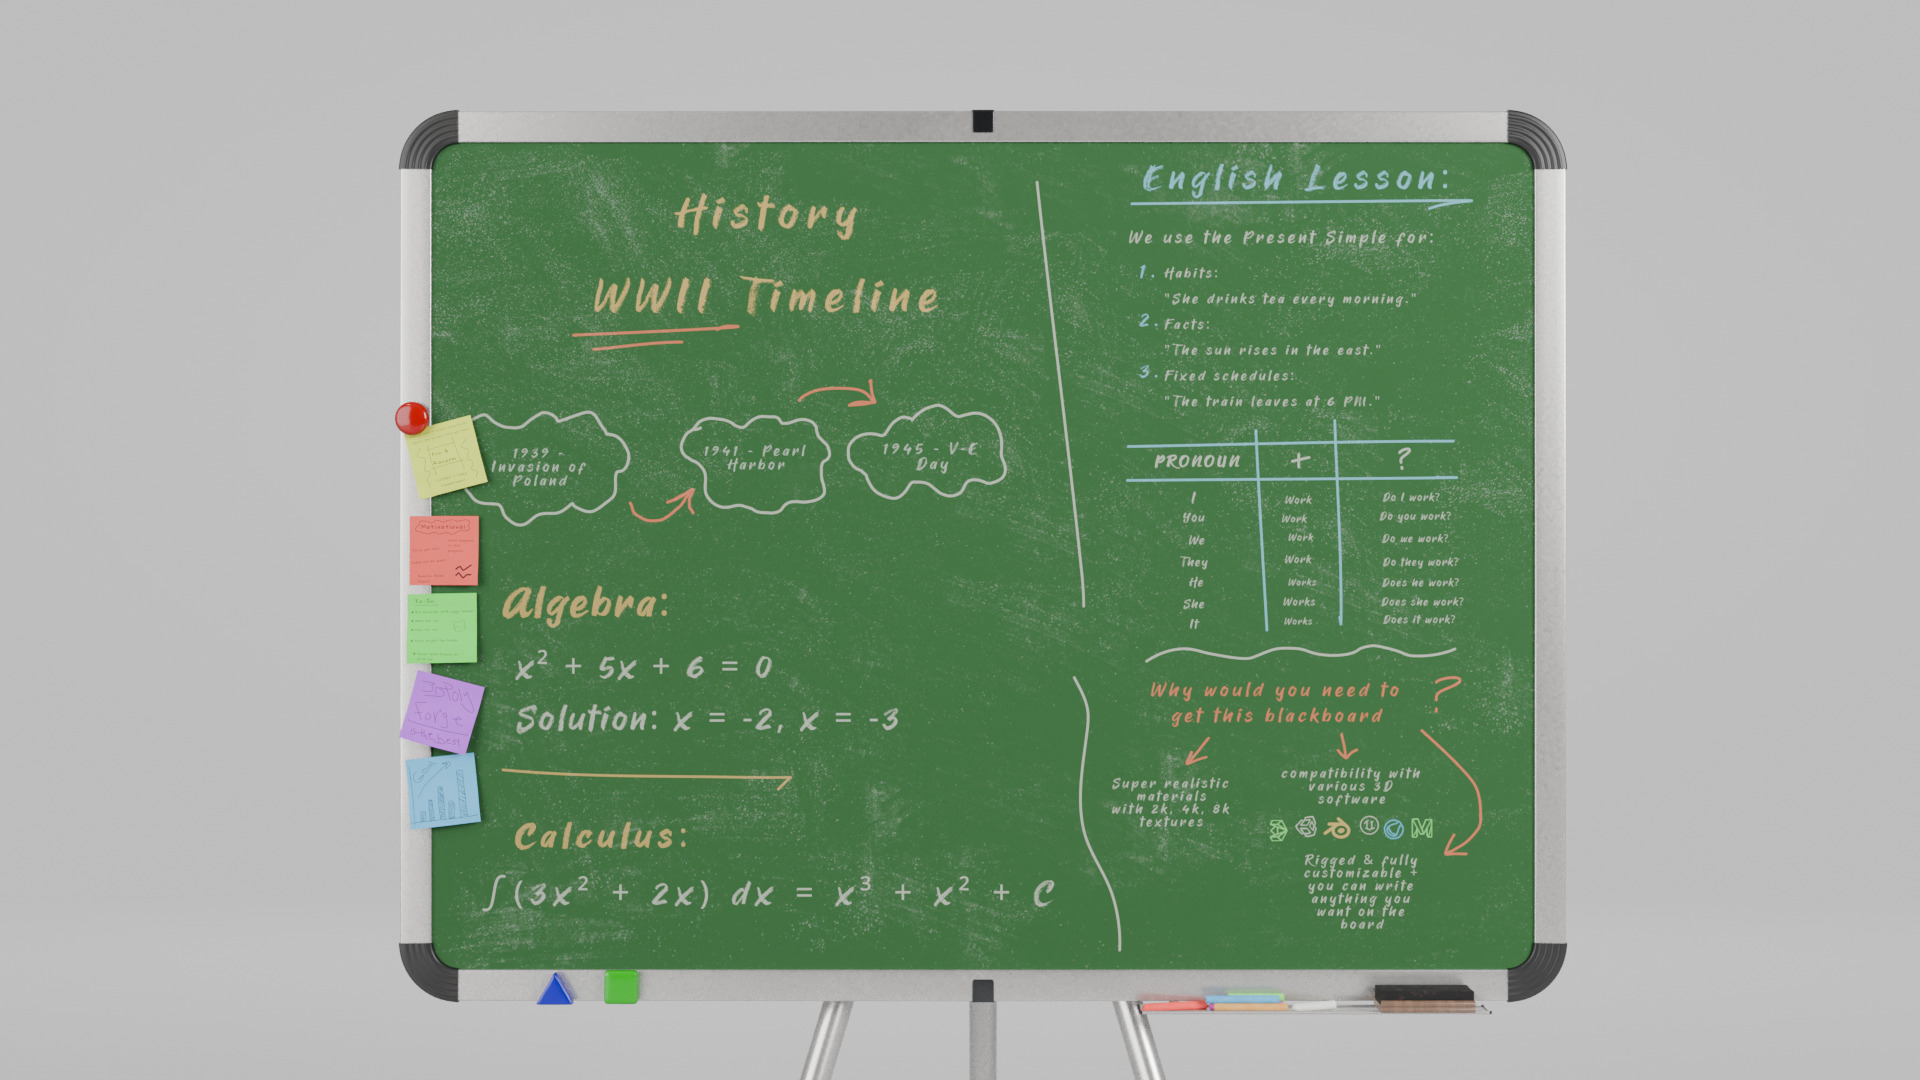 History
WWII Timeline
1939 -
Invasion of
Poland
1941 - Pearl
Harbor
1945 - V-E
Day
Algebra:
x² + 5x + 6 = 0
Solution: x = -2, x = -3
Calculus:
∫(3x² + 2x) dx = x³ + x² + C
Motivational
3DPoly
Forge
is the best
English Lesson:
We use the Present Simple for:
1. Habits:
"She drinks tea every morning."
2. Facts:
"The sun rises in the east."
3. Fixed schedules:
"The train leaves at 6 PM."
PRONOUN + ?
I Work Do I work?
You Work Do you work?
We Work Do we work?
They Work Do they work?
He Works Does he work?
She Works Does she work?
It Works Does it work?
Why would you need to
get this blackboard ?
Super realistic
materials
with 2k, 4k, 8k
textures
compatibility with
various 3D
software
Rigged & fully
customizable +
you can write
anything you
want on the
board